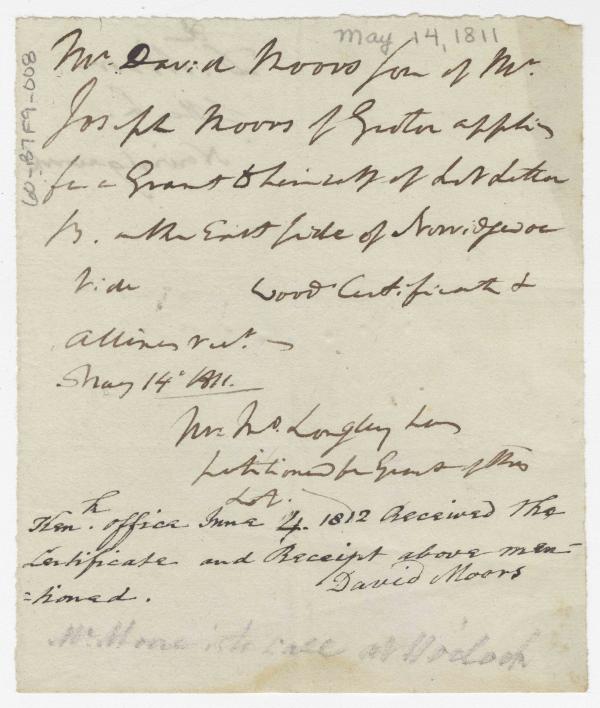 May 14, 1811
60-B7F9-008
Mr. David Moors son of Mr.
Joseph Moors of Groton applies
for a Grant to himself of Lot Letter
B. on the East side of Norridgewoc
Vide Wood Certificate &
Allines rect.
May 14th 1811.
Mr. Longley has
petitioned for Grant of this
Lot.
Kenk. office June 4. 1812 Received the
Certificate and Receipt above men-
David Moors
-tioned.
Mr. Moore is to call at